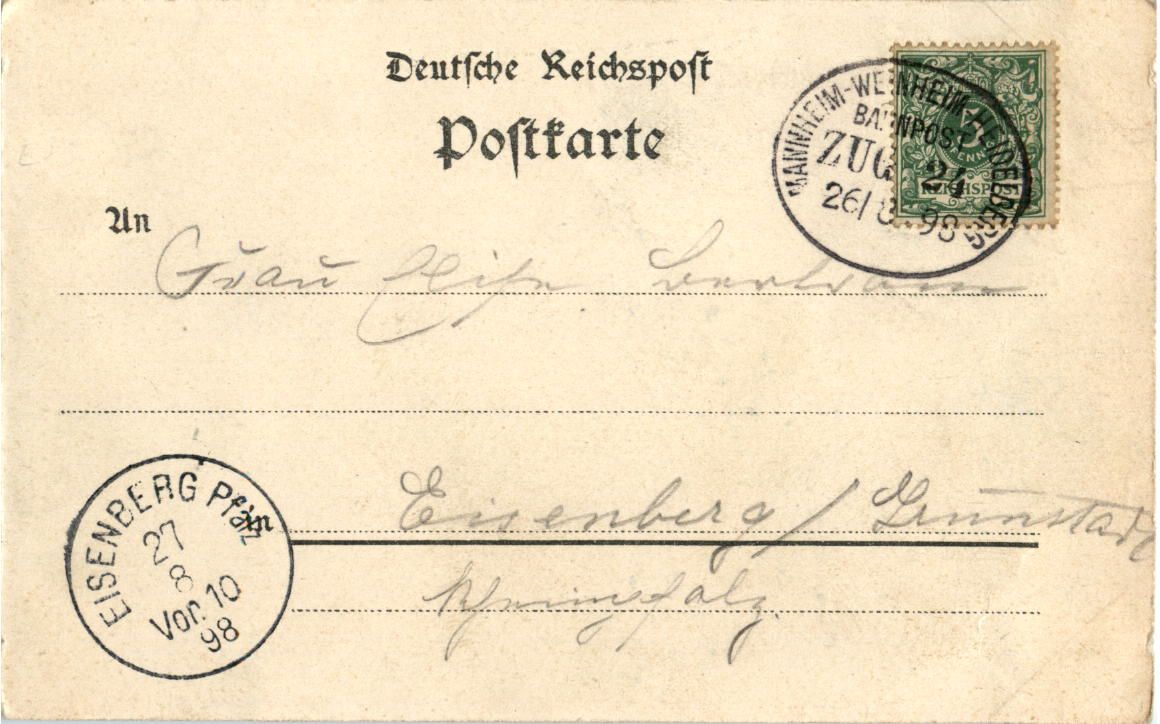 Deutsche Reichspost
Postkarte
MANNHEIM-WEINHEIM-HEIDELBERG
BAHNPOST
ZUG 24
26/8 98
5
PFENNIG
REICHSPOST
An
Frau Elise Bertram
in
Eisenberg / Grünstadt
Rheinpfalz
EISENBERG Pfalz
27
8
Vor. 10
98